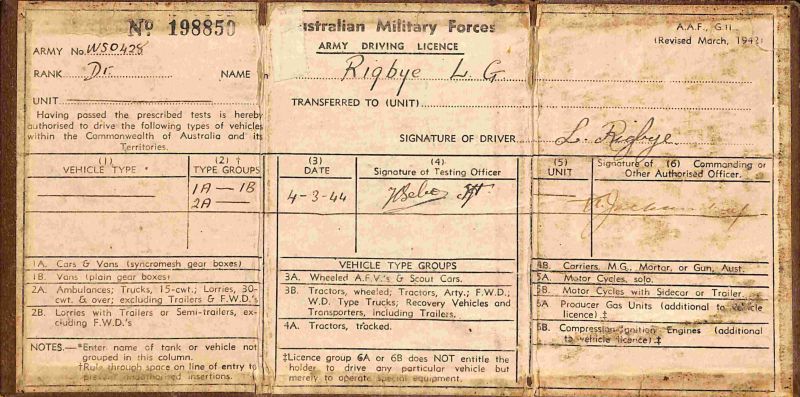 No 198850
ustralian Military Forces
A.A.F., G.11
(Revised March, 1942)
ARMY No. WS0428
ARMY DRIVING LICENCE
RANK Dr. NAME in Rigbye L. G.
UNIT
TRANSFERRED TO (UNIT)
Having passed the prescribed tests is hereby
authorised to drive the following types of vehicles
within the Commonwealth of Australia and its
Territories.
SIGNATURE OF DRIVER L. Rigbye.
(1)
VEHICLE TYPE *
(2) ‡
TYPE GROUPS
1A — 1B
2A —
(3)
DATE
4-3-44
(4)
Signature of Testing Officer
(5)
UNIT
Signature of (6) Commanding or
Other Authorised Officer.
1A. Cars & Vans (syncromesh gear boxes)
1B. Vans (plain gear boxes)
2A. Ambulances; Trucks, 15-cwt.; Lorries, 30-
cwt. & over; excluding Trailers & F.W.D.'s
2B. Lorries with Trailers or Semi-trailers, ex-
cluding F.W.D.'s
NOTES.—*Enter name of tank or vehicle not
grouped in this column.
†Rule through space on line of entry to
prevent unauthorised insertions.
VEHICLE TYPE GROUPS
3A. Wheeled A.F.V.'s & Scout Cars.
3B. Tractors, wheeled; Tractors, Arty.; F.W.D.;
W.D. Type Trucks; Recovery Vehicles and
Transporters, including Trailers.
4A. Tractors, tracked.
‡Licence group 6A or 6B does NOT entitle the
holder to drive any particular vehicle but
merely to operate special equipment.
4B. Carriers, M.G., Mortar, or Gun, Aust.
5A. Motor Cycles, solo.
5B. Motor Cycles with Sidecar or Trailer.
6A Producer Gas Units (additional to vehicle
licence).‡
6B. Compression-Ignition Engines (additional
to vehicle licence).‡